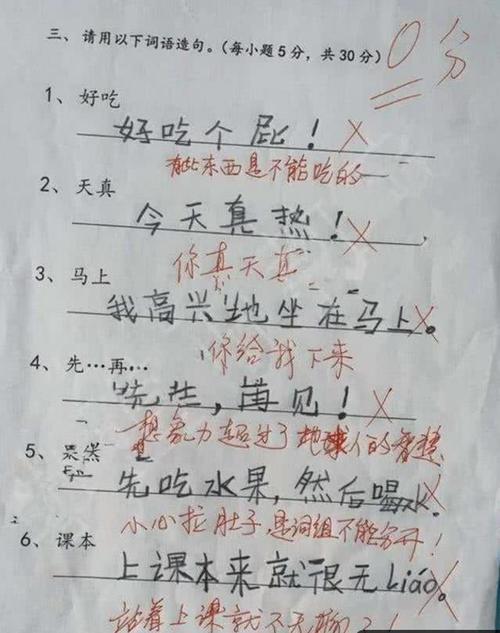 三、请用以下词语造句。(每小题5分，共30分) 0分
1、好吃
好吃个屁！
有些东西是不能吃的
2、天真
今天真热！
你真天真
3、马上
我高兴地坐在马上。
你给我下来
4、先…再…
先生，再见！
想象力超过了地球人的智慧
5、果然
先吃水果，然后喝水。
小心拉肚子，是词组不能分开！
6、课本
上课本来就很无Liáo。
站着上课就不无聊了！